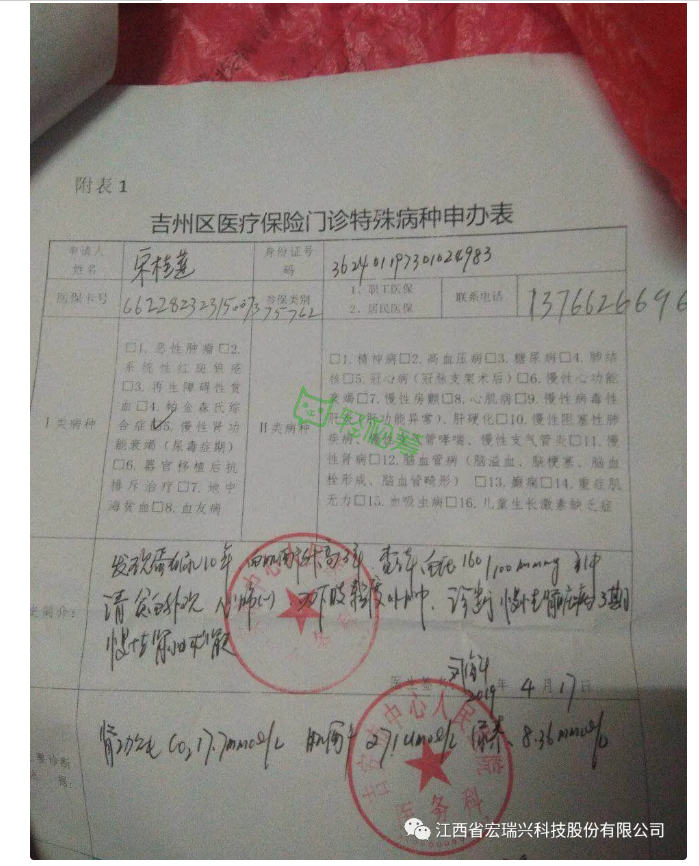 附表 1
吉州区医疗保险门诊特殊病种申办表
申请人
姓名
宋桂莲
身份证号
码
362401197301024983
医保卡号
参保类别
1、职工医保
2、居民医保
联系电话
13766266696
I 类病种
□1. 恶性肿瘤□2.
系统性红斑狼疮
□3. 再生障碍性贫
血□4. 帕金森氏综
合症□5. 慢性肾功
能衰竭(尿毒症期)
□6. 器官移植后抗
排斥治疗□7. 地中
海贫血□8. 血友病
II类病种
□1. 精神病□2. 高血压病□3. 糖尿病□4. 肺结
核□5. 冠心病(冠脉支架术后)□6. 慢性心功能
衰竭□7. 慢性房颤□8. 心肌病□9. 慢性病毒性
肝炎(肝功能异常)、肝硬化□10. 慢性阻塞性肺
疾病、慢性支气管哮喘、慢性支气管炎□11. 慢
性肾病□12. 脑血管病(脑溢血、脑梗塞、脑血
栓形成、脑血管畸形)□13. 癫痫□14. 重症肌
无力□15. 血吸虫病□16. 儿童生长激素缺乏症
轻松筹
发现蛋白尿10年 血肌酐升高3年 查体: 血压160/100mmHg
诊断 慢性肾脏病
简介:
2019 年 4 月 17 日
要诊断
据:
肾功能 CO₂ 17.7mmol/L 肌酐 271umol/L 尿素 8.36mmol/L
吉安市中心人民医院
医务科
江西省宏瑞兴科技股份有限公司